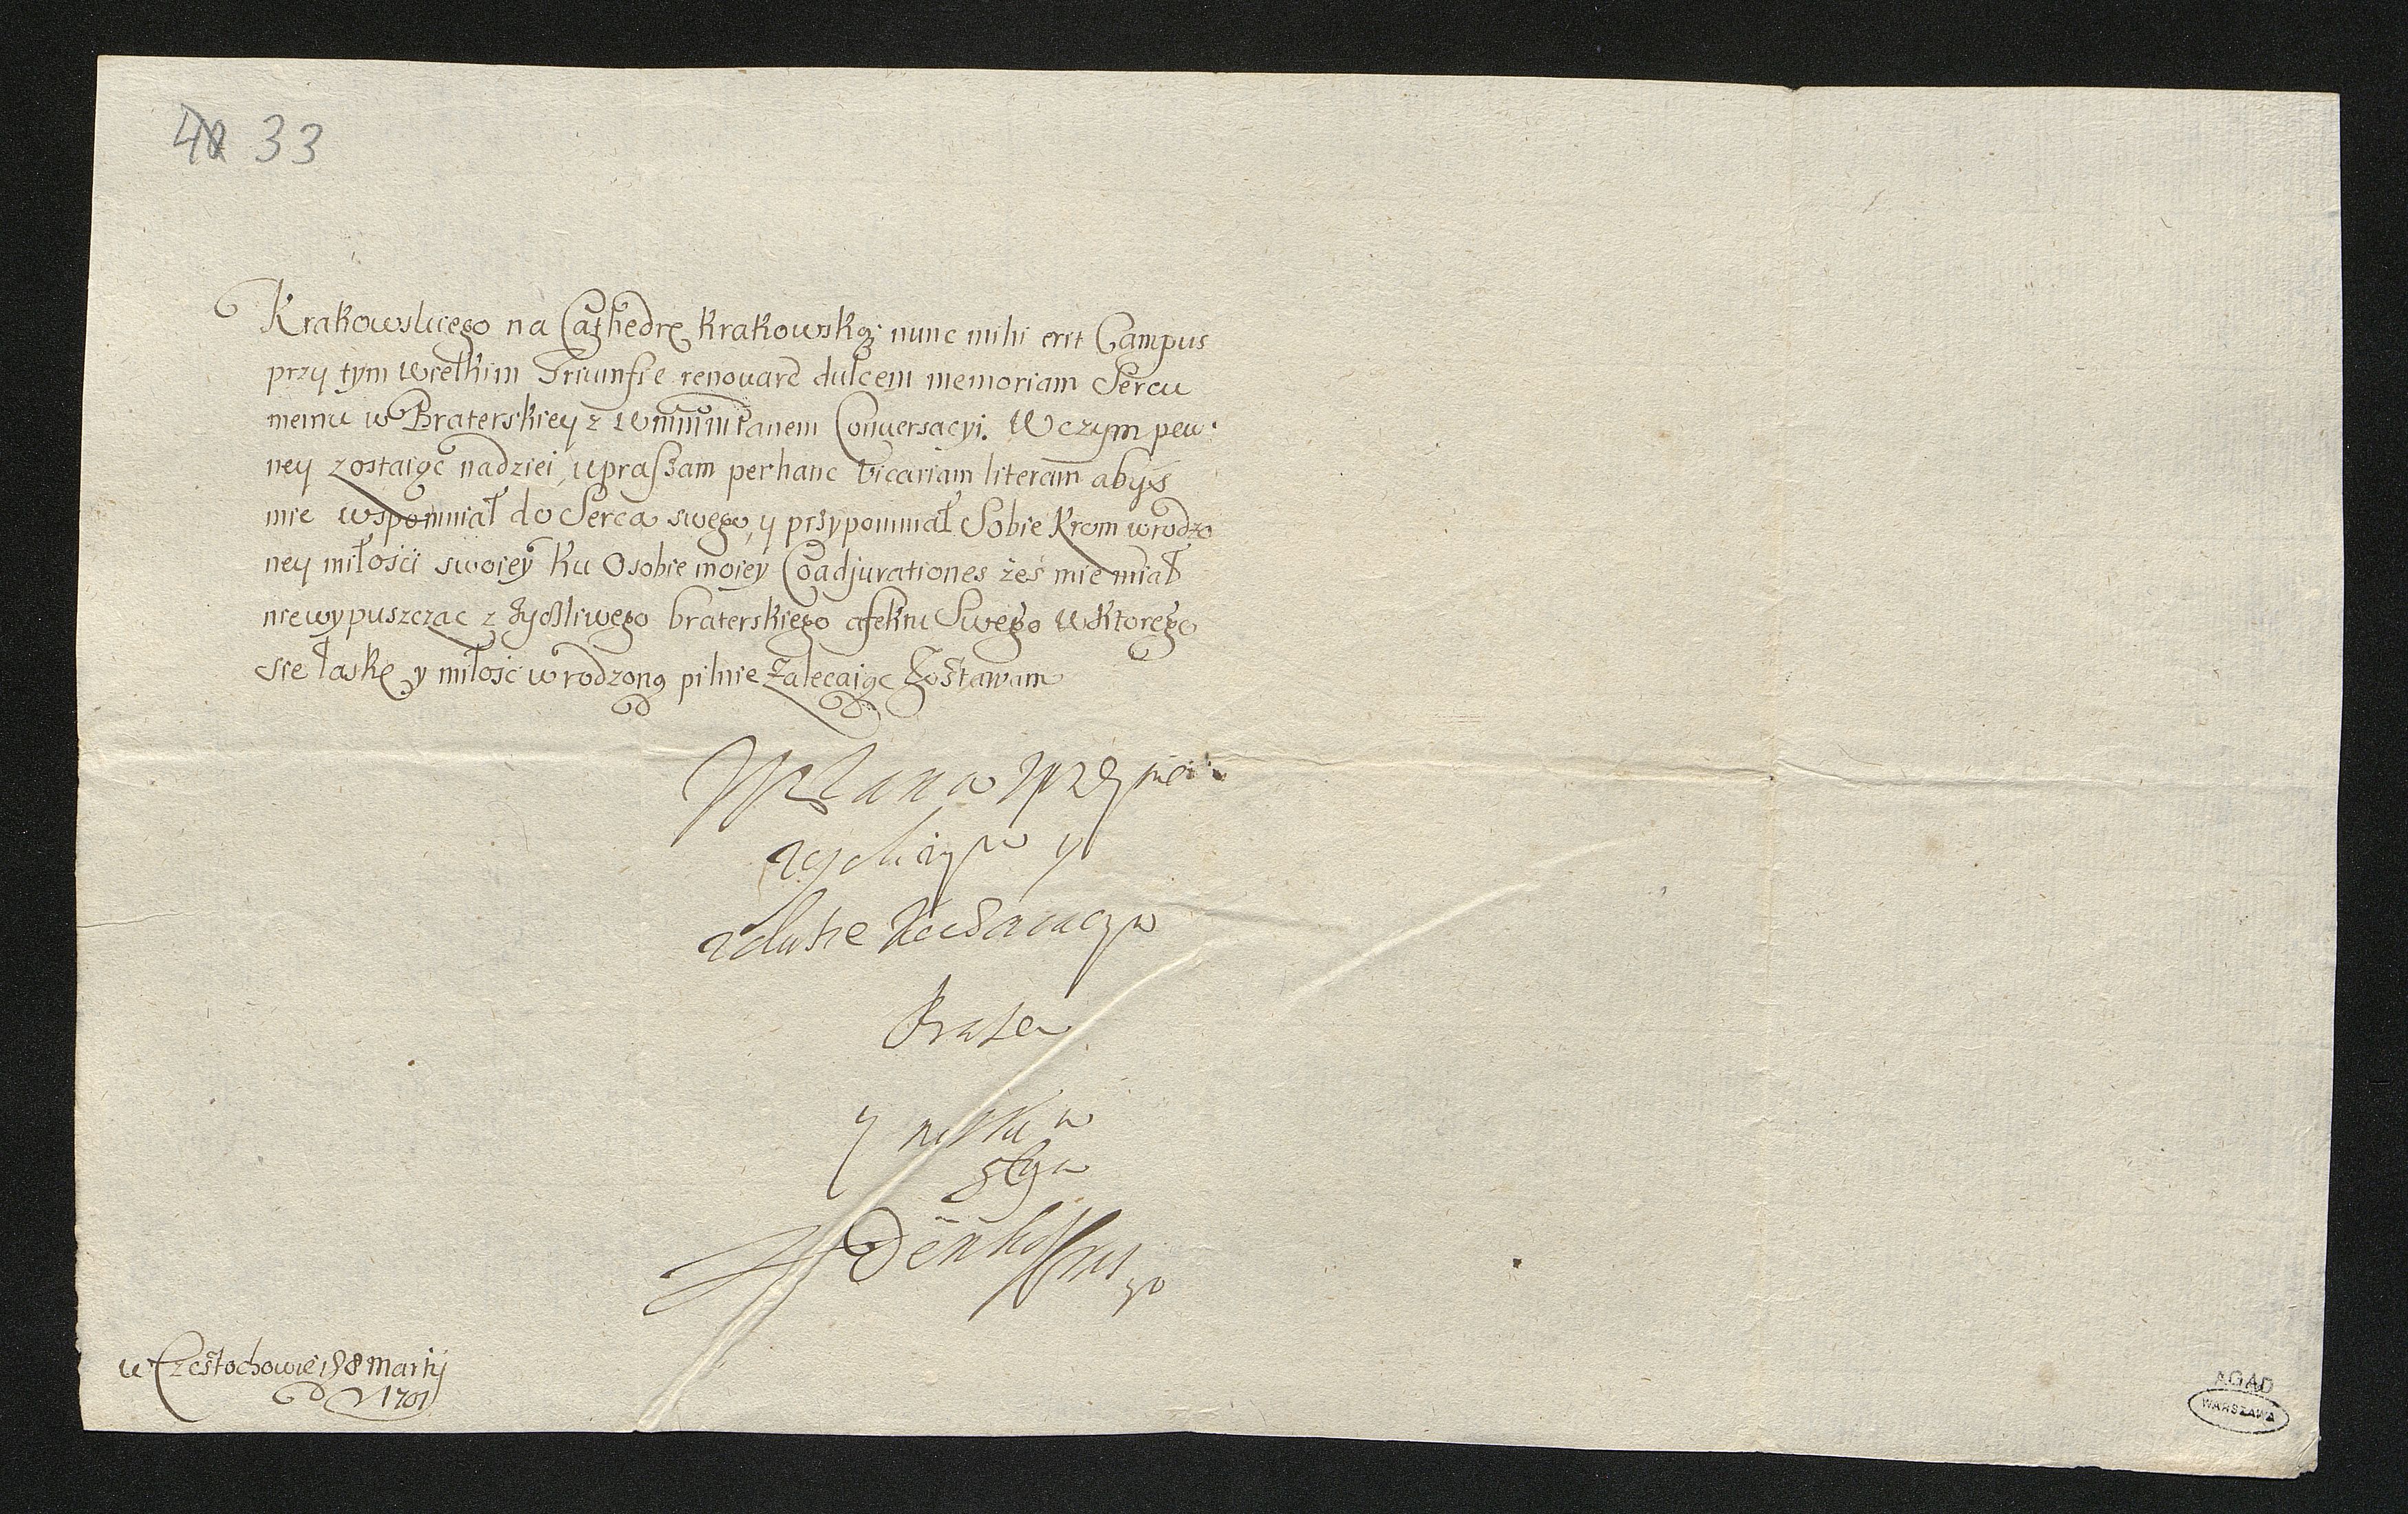 33
Krakowskiego na Cathedrę Krakowską; nunc mihi erit Campus
przy tym wielkim Triumfie renovare dulcem memoriam Sercu
memu w Braterskiey z Wmmm Panem Conversacyi. W czym pew
ney zostaiąc nadziei, upraszam per hanc vicariam literam abyś
mie wspomniał do Serca swego, y przypomniał Sobie krom wrodzo
ney miłości swoiey ku Osobie moiey Coadjurationes żeś mie miał
niewypuszczac z życzliwego braterskiego afektu Swego w ktorego
sie łaskę y miłość wrodzoną pilnie zalecaiąc Zostawam
WM Pana
życzliwym y
Kochaiącym
Bratem
y
sługą
Dënhoff
w Czestochowie 18 Martij
1701
AGAD
WARSZAWA